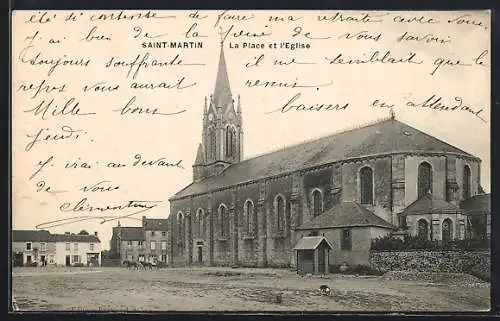 été si contente de faire ma retraite avec vous
j'ai bien de la peine de vous savoir
toujours souffrante il me semblait que le
repos vous aurait remise.
SAINT-MARTIN La Place et l'Église
Mille bons baisers en attendant
jeudi
j'irai au devant
de vous
Clémentine